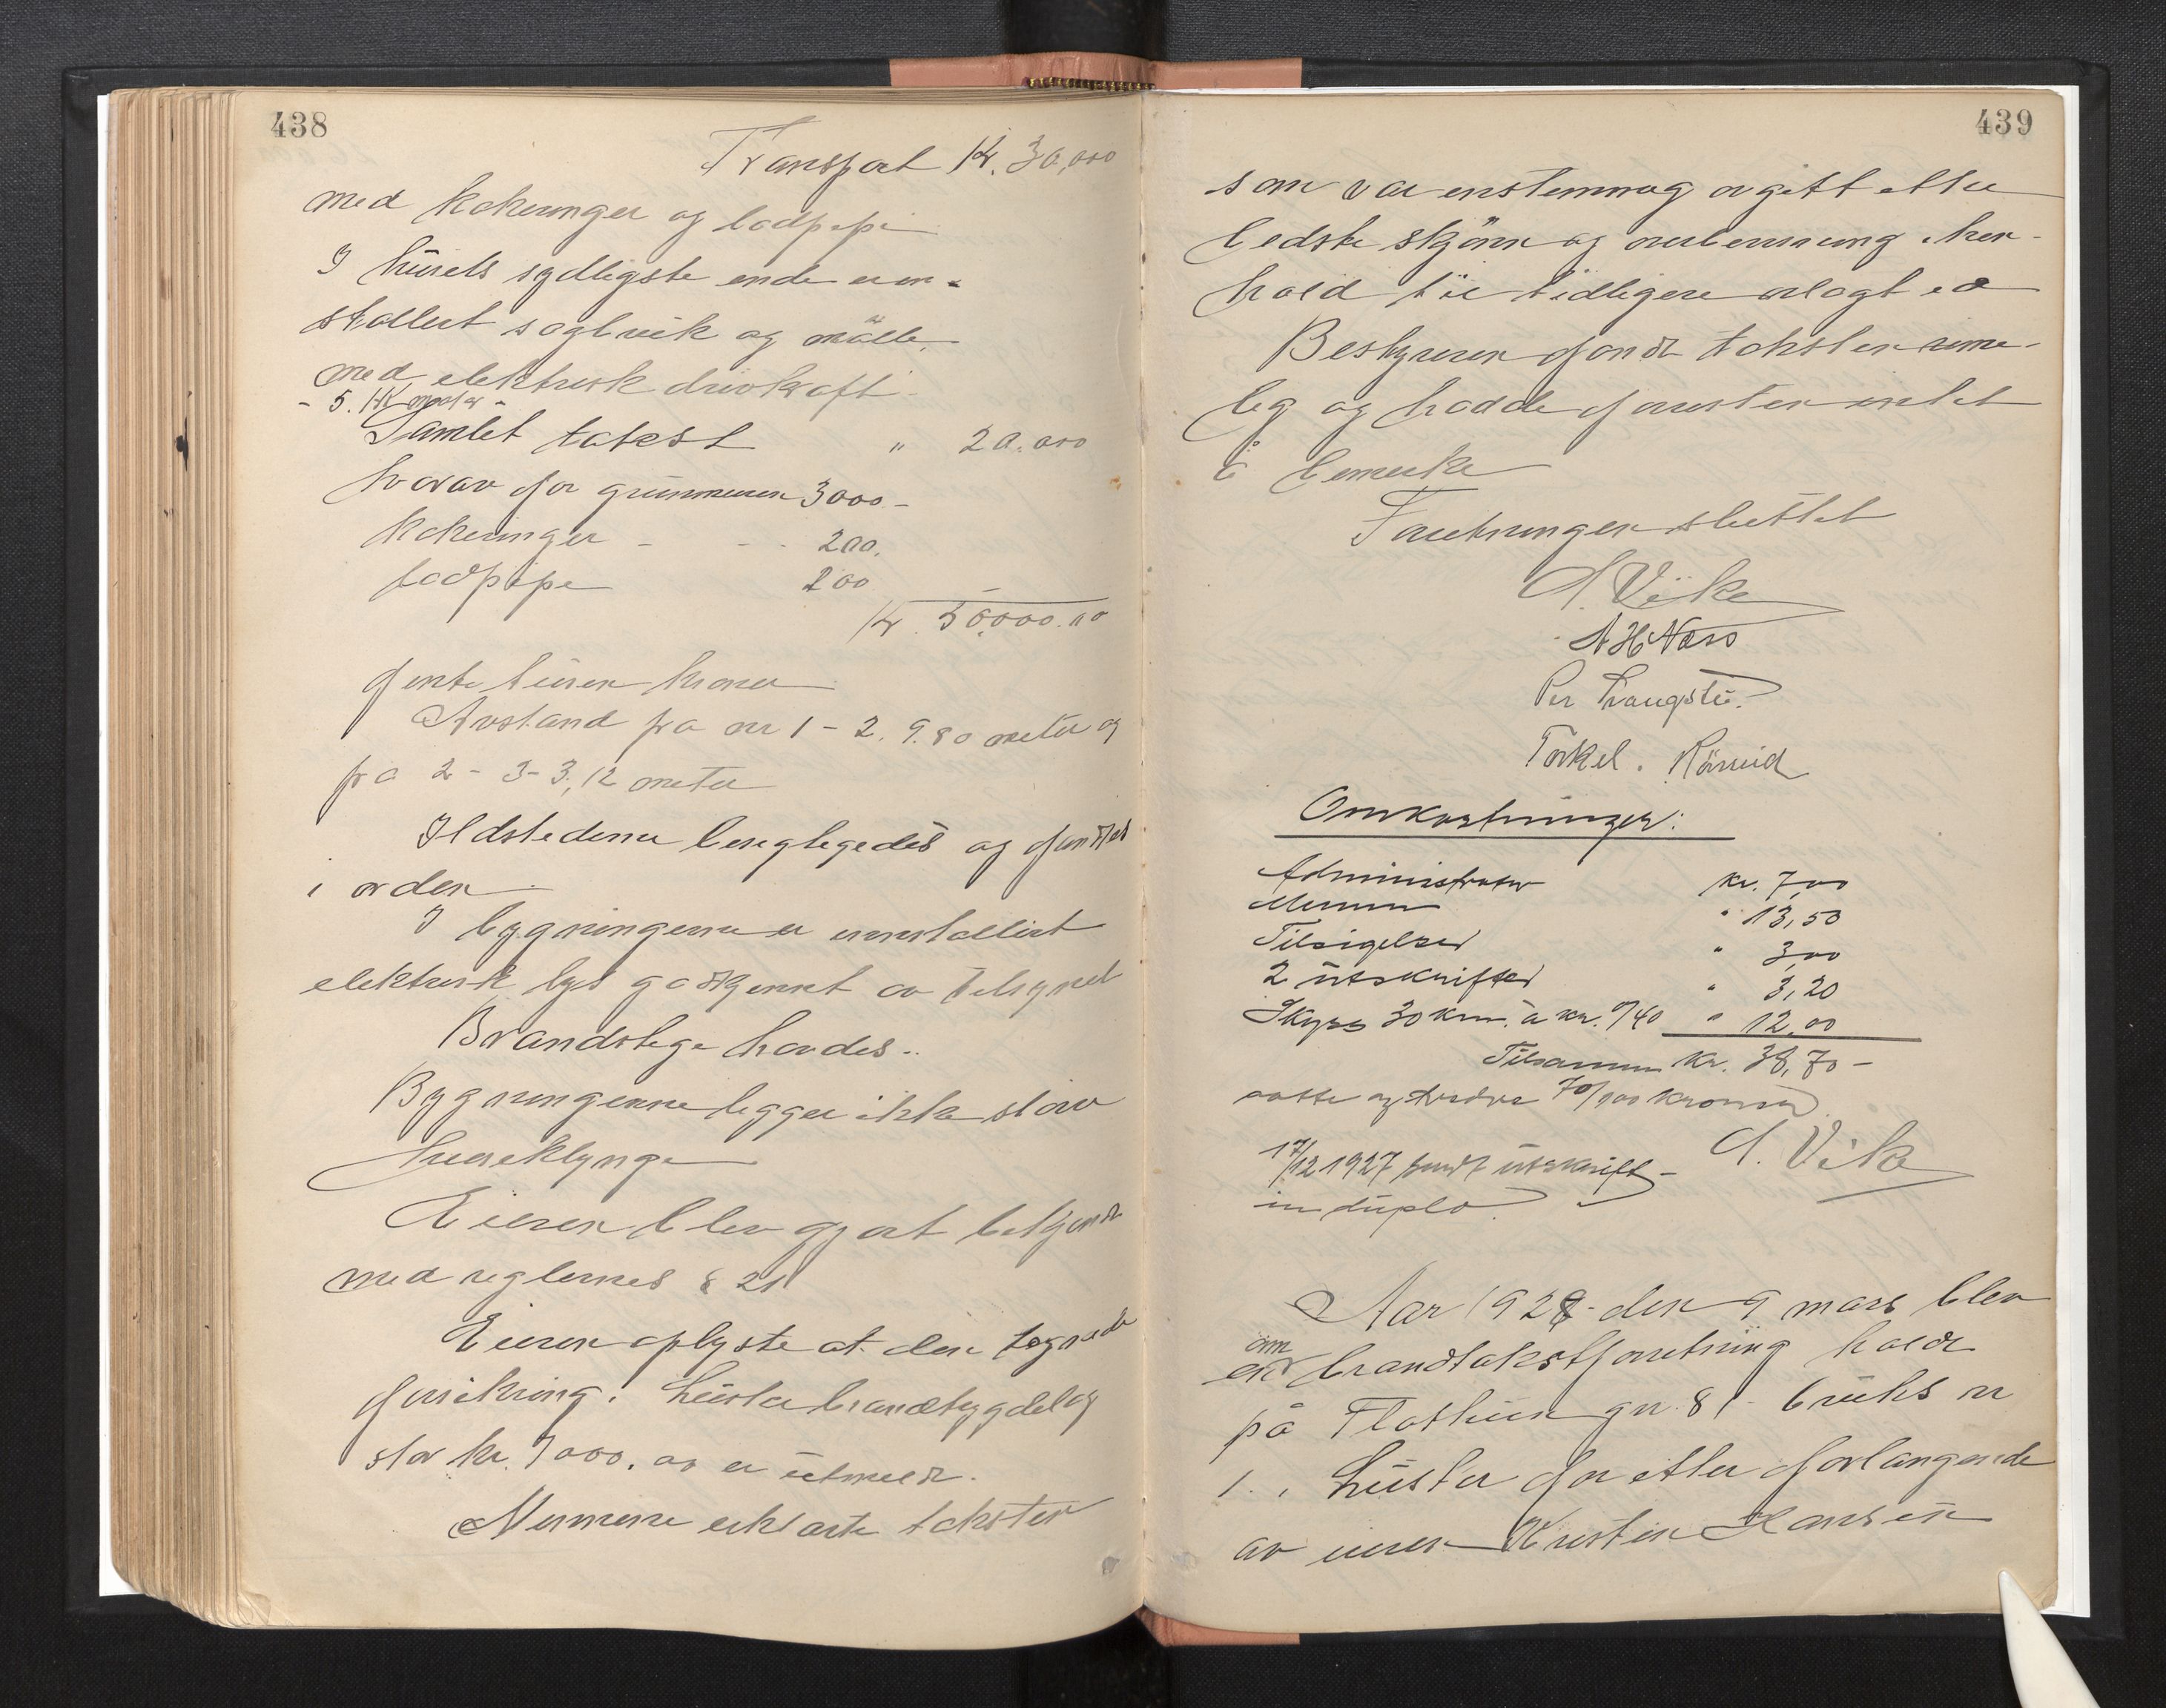 438
Transport Kr. 30,000
med kokeringer og lodpipe
I husets sydligste ende er in-
stallert sagbruk og mølle
med elektrisk drivkraft
- 5. HK motor -
Samlet takst " 20.000
hvorav for grunmuren 3000-
kokeringer - - - 200.
lodpipe 200
Kr 50,000.00
femti tusen kroner
Avstand fra nr 1 - 2. 9.80 meter og
fra 2 - 3 - 3,12 meter
Ildstederne besigtigedes og fandtes
i orden
I bygningerne er innstallert
elektrisk lys godkjennt av tilsynet
Brandstige havdes.
Bygningenne ligger ikke i større
huseklynge
Eieren blev gjort bekjendt
med reglernes § 21
Eieren oplyste at den tegnede
forsikring i Luster brandbygdelag
stor kr. 7000.00 er utmeldt.
Mennene erklærte taksten
439
som var enstemmig avgitt etter
bedste skjønn og overbevisning i hen-
hold til tidligere avlagt ed
Bestyreren fandt taksten rime-
lig og hadde forresten intet
å bemerke
Forretningen sluttet
A. Vike
A H Næss
Per
Torkel.
Omkostninger:
Administrator kr. 7,00
Mennene " 13,50
Tilsigelser " 3,00
2 utskrifter " 3,20
Skyss 30 km. à kr. 0/40 " 12,00
Tilsammen kr. 38,70 -
aatte og tredve 70/100 kroner.
17/12 1927 sendt utskrift -
in duplo
A. Vike
Aar 1928 den 9 mars blev
om
brandtakstforretning holdt
på Flathus gr. 81 - bruks nr
1. i Luster for etter forlangende
av eieren Kristen Hansen